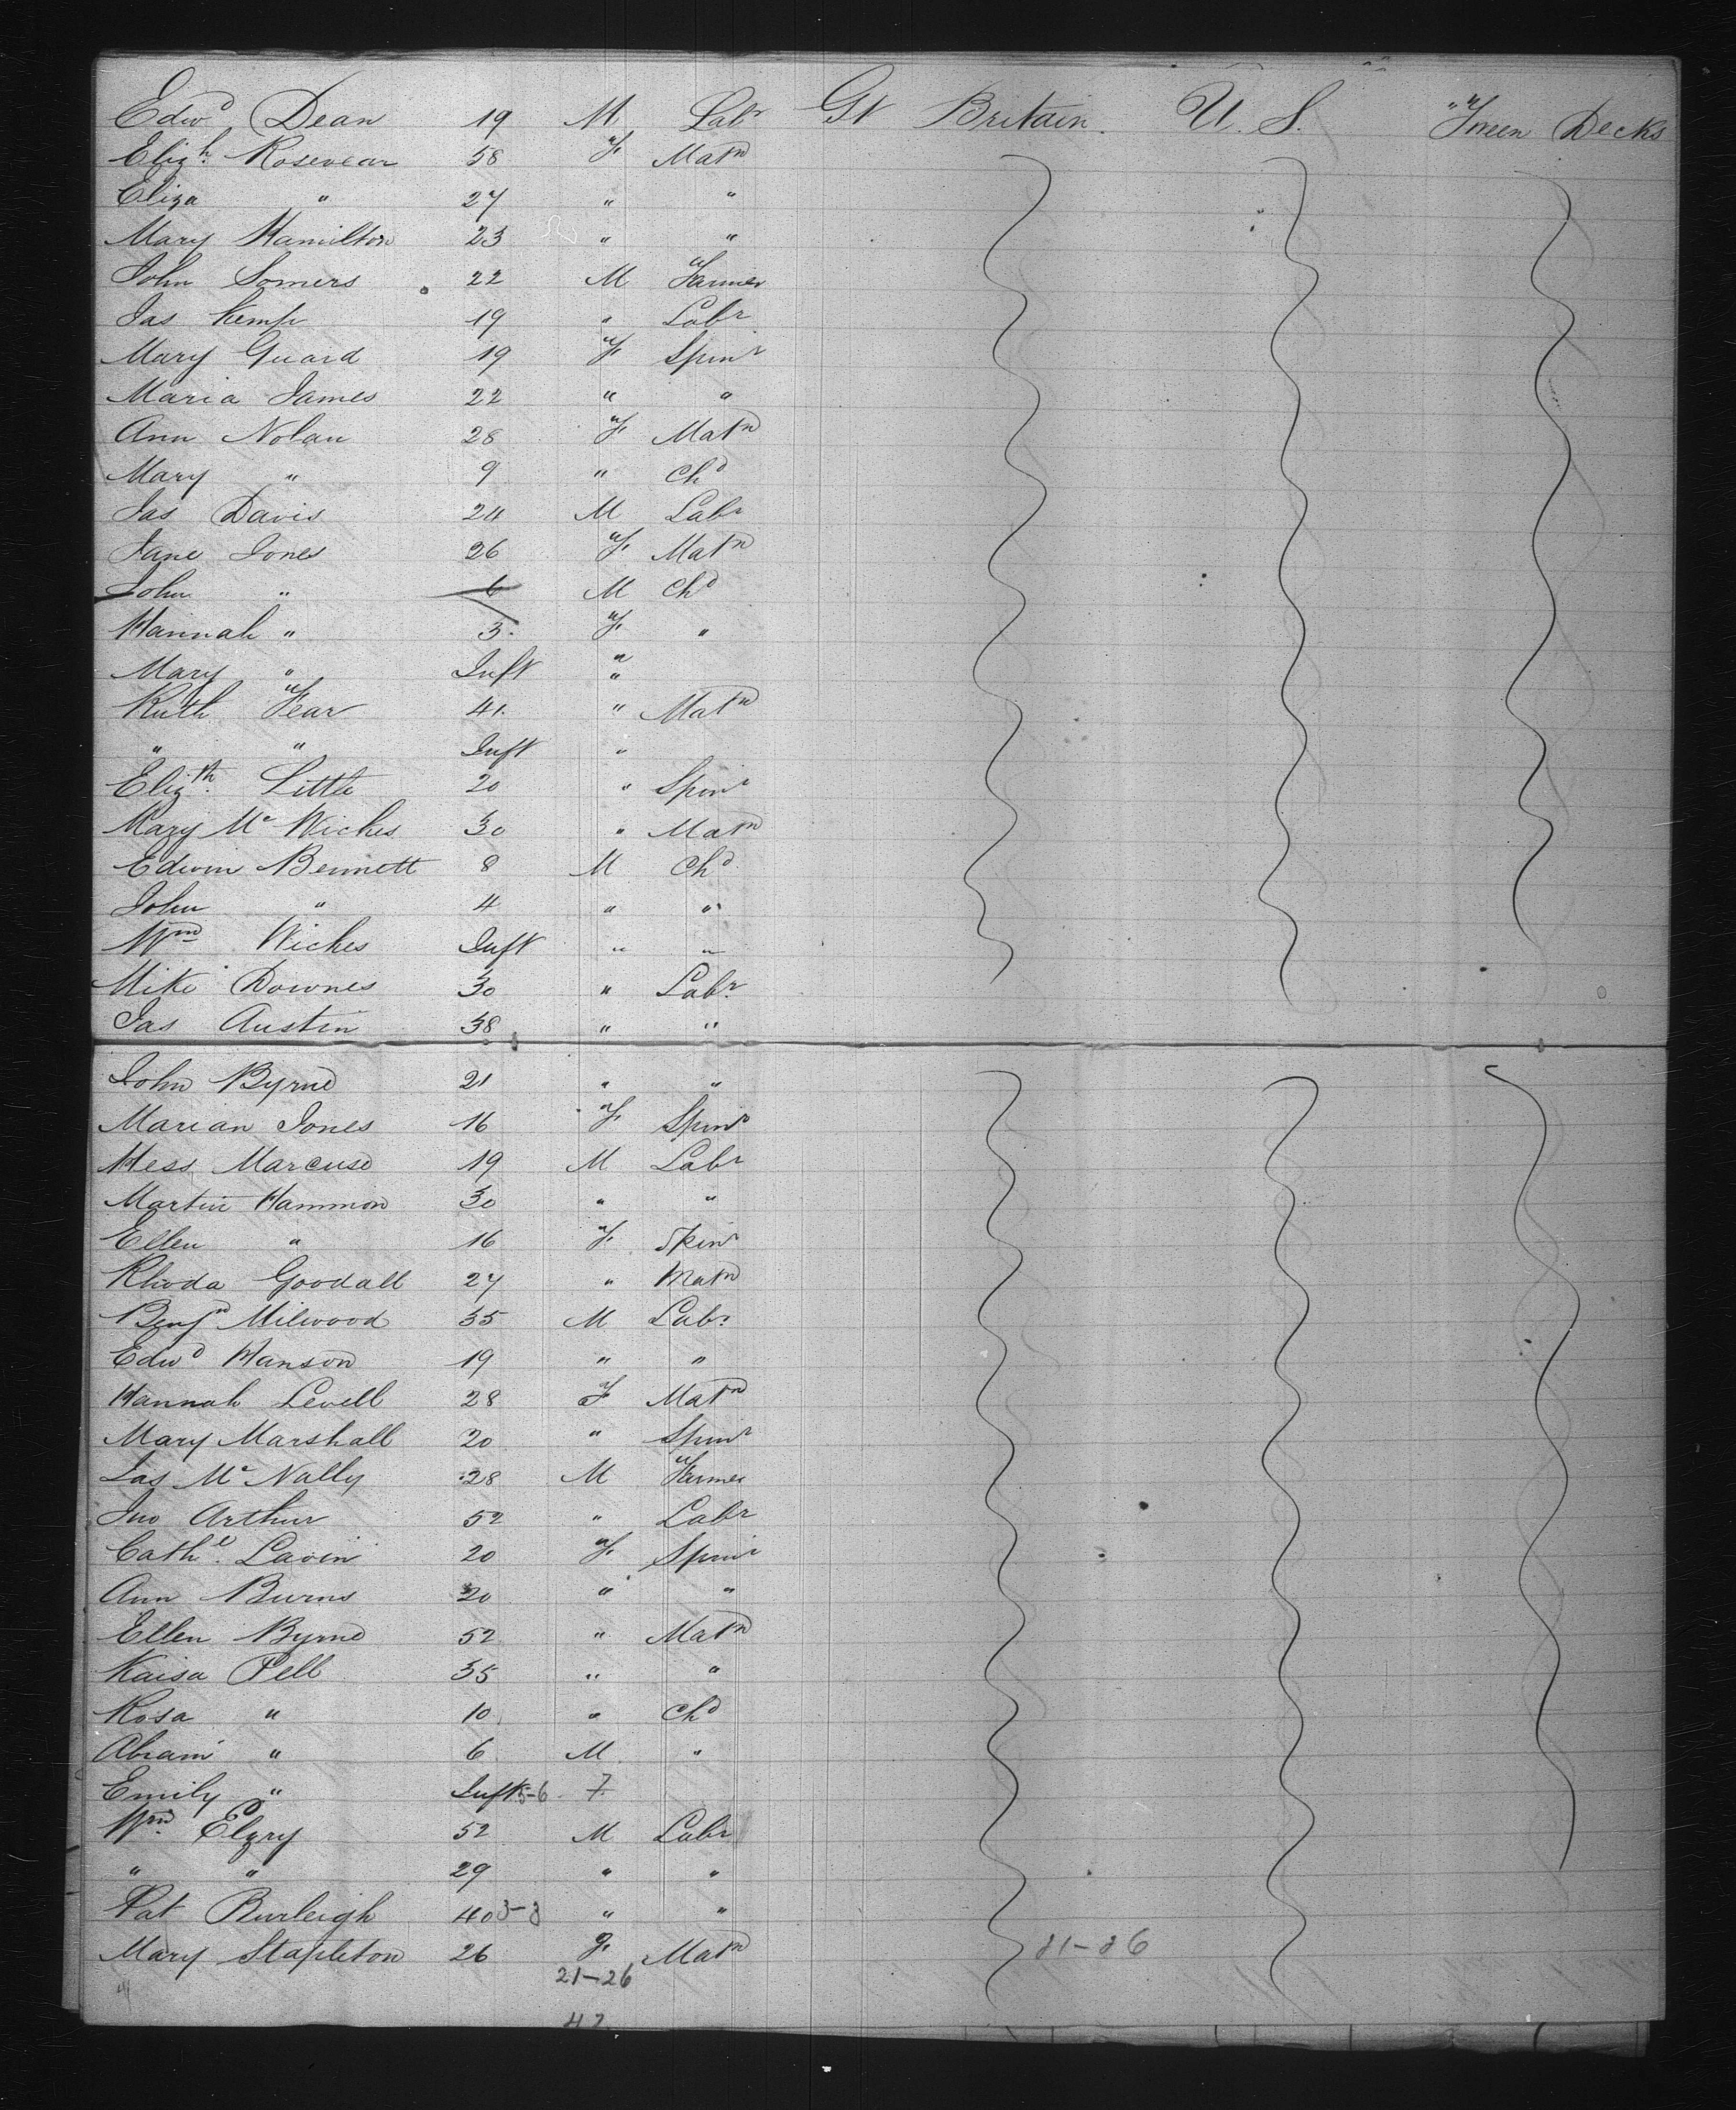 Edwd Dean 19 M Labr Gt Britain. U. S. 'Tween Decks
Elizh. Rosevear 58 F. Matn
Eliza " 27 " "
Mary Hamilton 23 " "
John Somers 22 M Farmer
Jas Kemp 19 " Labr
Mary Guard 19 F. Spinr
Maria James 22 " "
Ann Nolan 28 F. Matn
Mary " 9 " Chd
Jas Davis 24 M Labr
Jane Jones 26 F. Matn
John " 6 M Chd
Hannah " 3. F. "
Mary " Inft "
Ruth Fear 41. " Matn
" " Inft "
Elizth. Little 20 " Spinr
Mary Mc Wiches 30 " Matn
Edwin Bennett 8 M Chd
John " 4 " "
Wm Wiches Inft " "
Mike Downes 30 " Labr.
Jas Austin 38 " "
John Byrne 21 " "
Marian Jones 16 F. Spinr
Hess Marcuse 19 M Labr
Martin Hammon 30 " "
Ellen " 16 F. Spinr
Rhoda Goodall 27 " Matn
Benjn Milwood 35 M Labr
Edwd Hanson 19 " "
Hannah Levell 28 F Matn
Mary Marshall 20 " Spinr
Jas Mc Nally 28 M Farmer
Jno Arthur 52 " Labr
Cathe. Lavin 20 F. Spinr
Ann Burns 20 " "
Ellen Byrne 52 " Matn
Kaisa Pell 35 " "
Rosa " 10 " Chd
Abram " 6 M "
Emily " Inft 5-6 F
Wm. Elzry 52 M Labr
" " 29 " "
Pat Burleigh 40 3-3 " "
Mary Stapleton 26 F. Matn
21-26
42